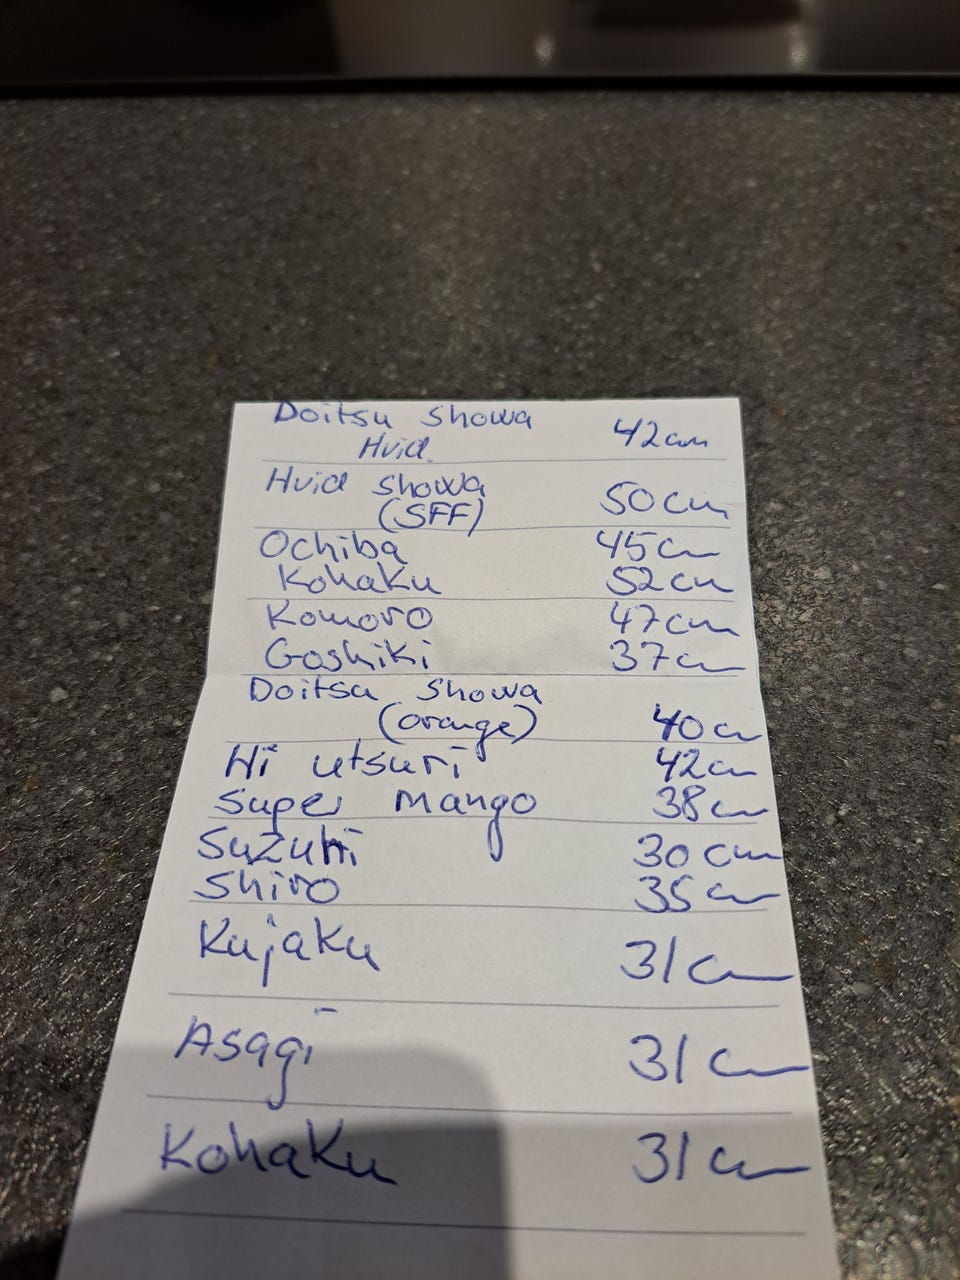 Doitsu Showa 42cm
Hvid
Hvid Showa 50cm
(SFF)
Ochiba 45cm
Kohaku 52cm
Komoro 47cm
Goshiki 37cm
Doitsu Showa
(orange) 40cm
Hi utsuri 42cm
Super Mango 38cm
30cm
Shiro 35cm
Kujaku 31cm
Asagi 31cm
Kohaku 31cm